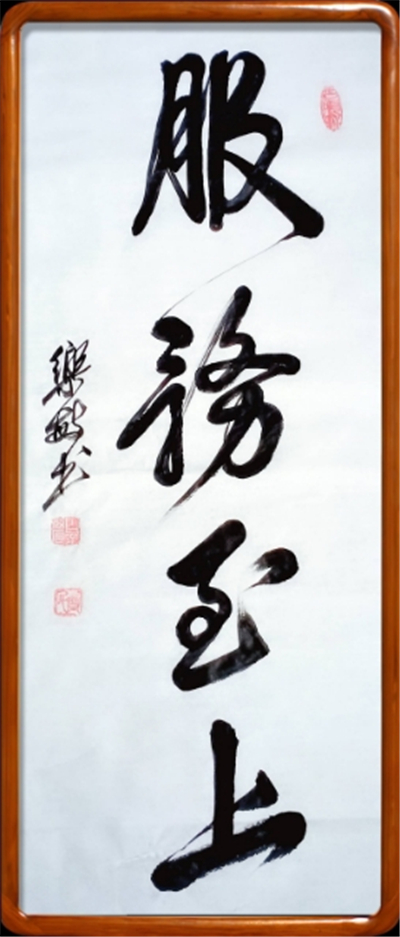 服務至上